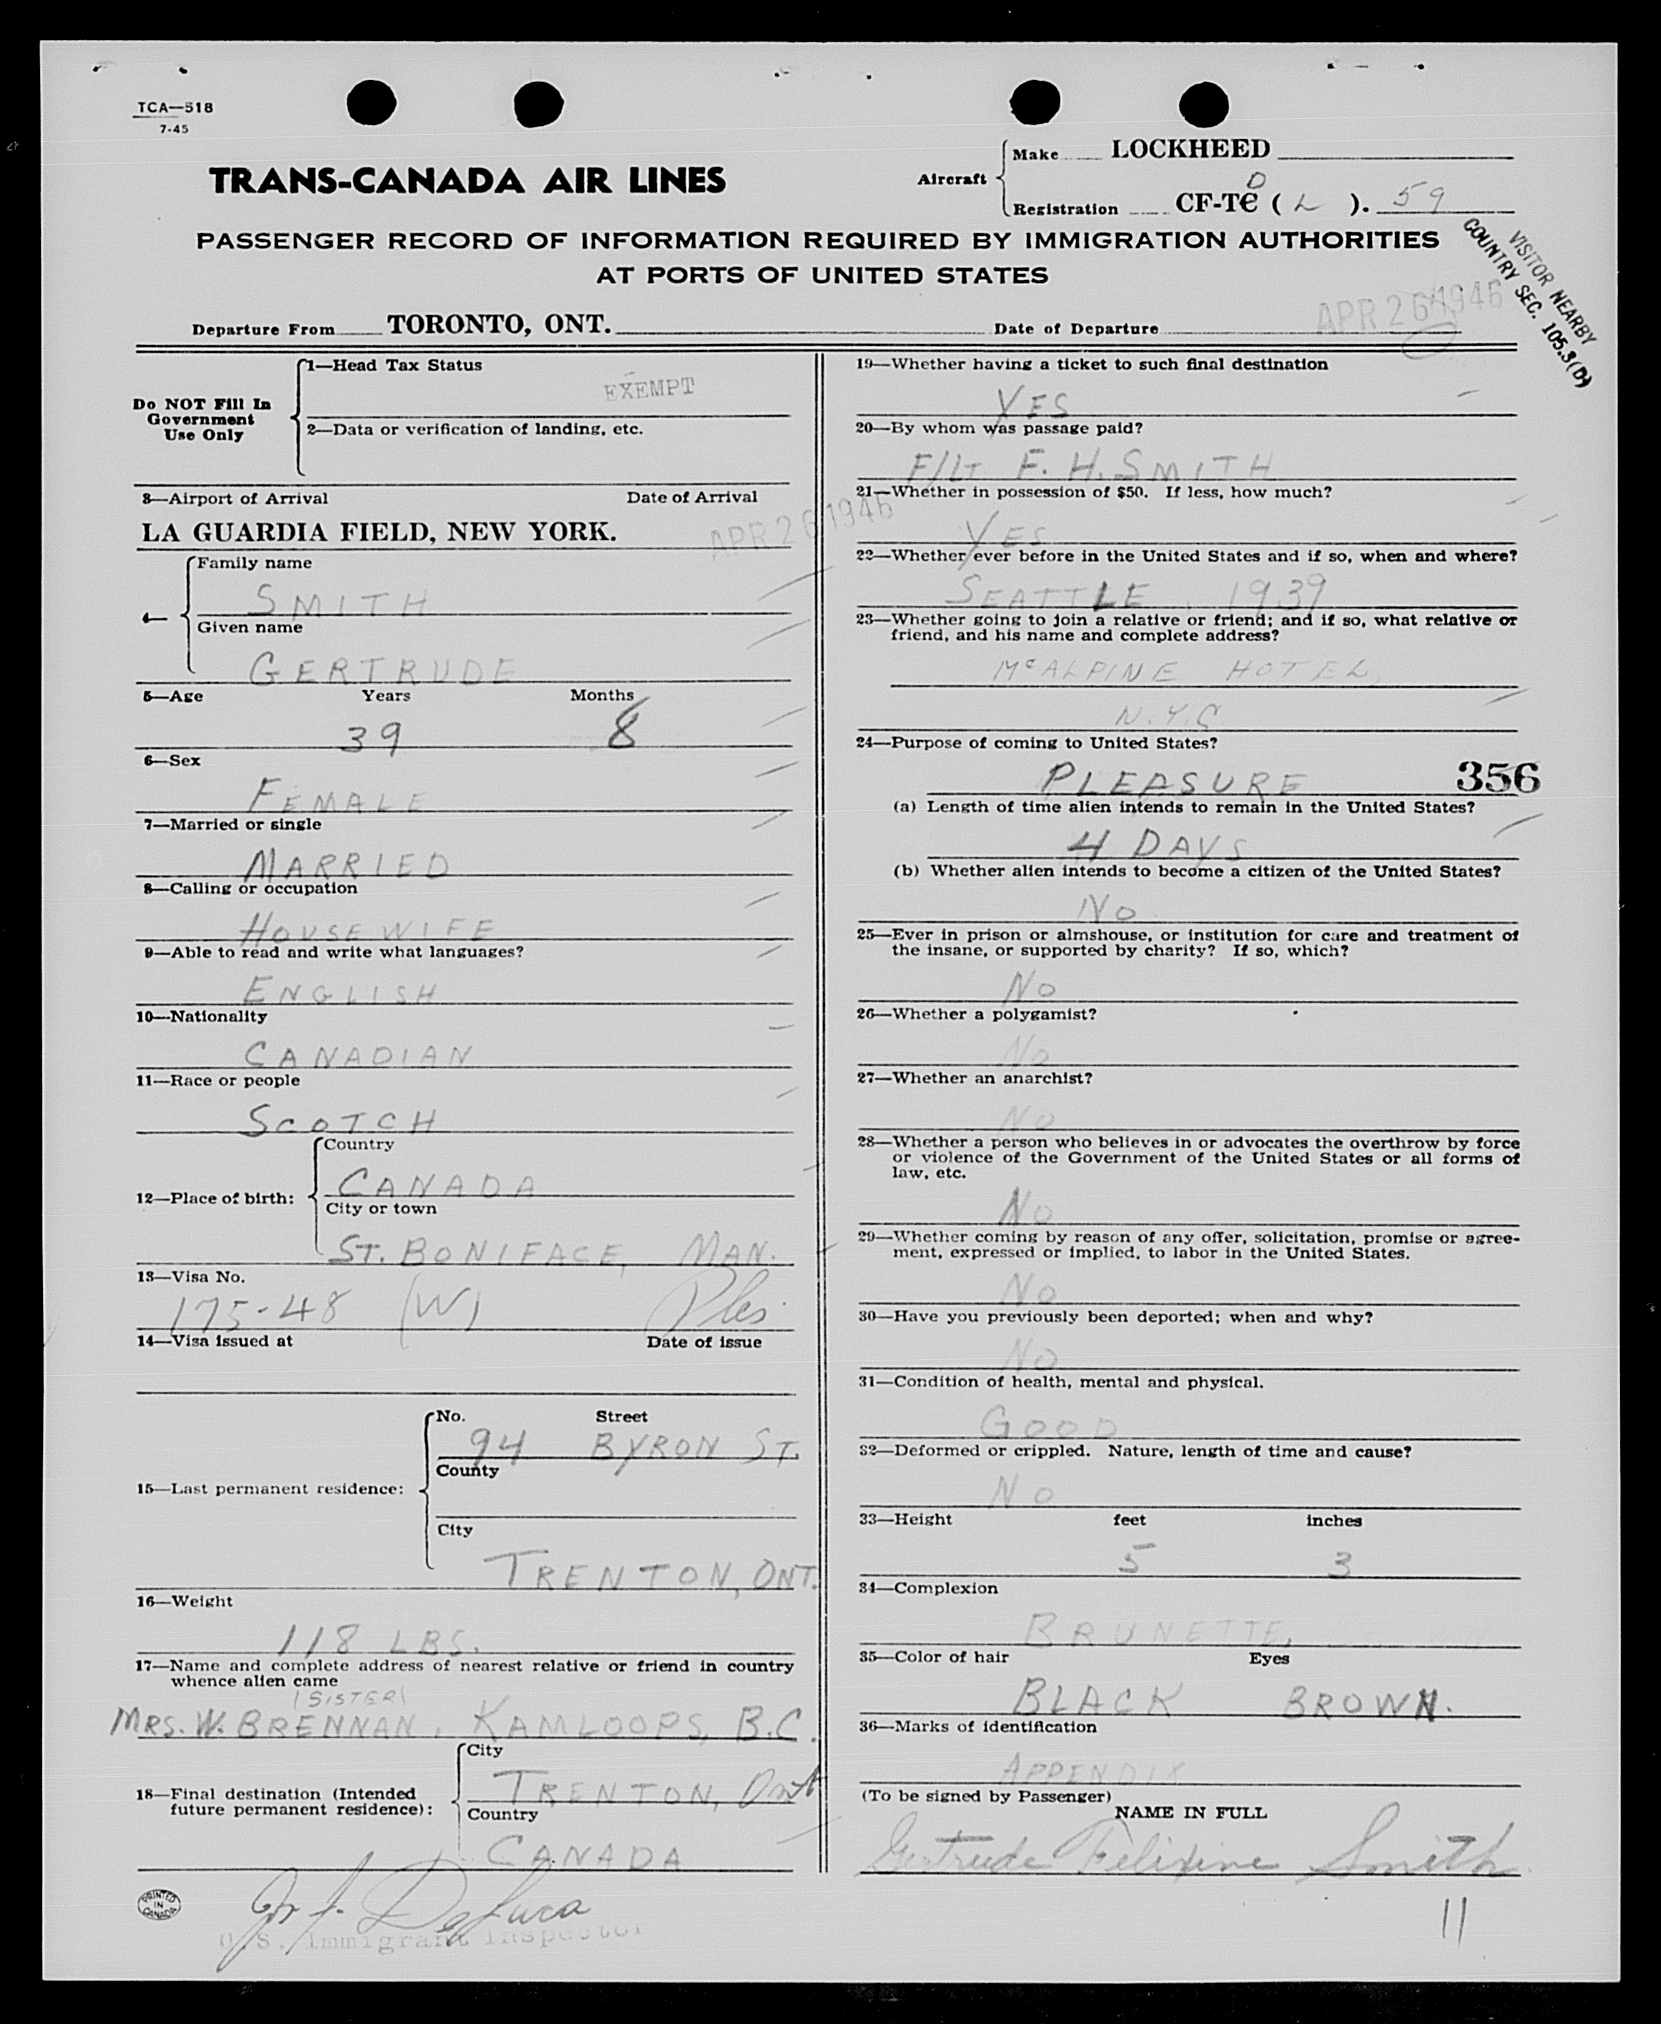 TCA—518
7-45
TRANS-CANADA AIR LINES
Aircraft
Make LOCKHEED
Registration CF-TC D ( L ). 59
PASSENGER RECORD OF INFORMATION REQUIRED BY IMMIGRATION AUTHORITIES
AT PORTS OF UNITED STATES
VISITOR NEARBY
COUNTRY SEC. 105.3(D)
Departure From TORONTO, ONT. Date of Departure APR 26 1946
Do NOT Fill In
Government
Use Only
1—Head Tax Status
EXEMPT
2—Data or verification of landing, etc.
3—Airport of Arrival Date of Arrival
LA GUARDIA FIELD, NEW YORK. APR 26 1946
4—
Family name
SMITH
Given name
GERTRUDE
5—Age Years Months
39 8
6—Sex
FEMALE
7—Married or single
MARRIED
8—Calling or occupation
HOUSEWIFE
9—Able to read and write what languages?
ENGLISH
10—Nationality
CANADIAN
11—Race or people
SCOTCH
12—Place of birth:
Country
CANADA
City or town
ST. BONIFACE, MAN.
13—Visa No.
175-48 (W)
14—Visa issued at Date of issue
15—Last permanent residence:
No. Street
94 BYRON ST.
County
City
TRENTON, ONT.
16—Weight
118 LBS.
17—Name and complete address of nearest relative or friend in country
whence alien came
(SISTER)
MRS. W. BRENNAN, KAMLOOPS, B.C.
18—Final destination (Intended
future permanent residence):
City
TRENTON, Ont
Country
CANADA
19—Whether having a ticket to such final destination
YES
20—By whom was passage paid?
F/LT F. H. SMITH
21—Whether in possession of $50. If less, how much?
YES
22—Whether ever before in the United States and if so, when and where?
SEATTLE, 1939
23—Whether going to join a relative or friend; and if so, what relative or
friend, and his name and complete address?
McALPINE HOTEL,
N.Y.C.
24—Purpose of coming to United States?
PLEASURE 356
(a) Length of time alien intends to remain in the United States?
4 DAYS
(b) Whether alien intends to become a citizen of the United States?
NO
25—Ever in prison or almshouse, or institution for care and treatment of
the insane, or supported by charity? If so, which?
NO
26—Whether a polygamist?
NO
27—Whether an anarchist?
NO
28—Whether a person who believes in or advocates the overthrow by force
or violence of the Government of the United States or all forms of
law, etc.
NO
29—Whether coming by reason of any offer, solicitation, promise or agree-
ment, expressed or implied, to labor in the United States.
NO
30—Have you previously been deported; when and why?
NO
31—Condition of health, mental and physical.
GOOD
32—Deformed or crippled. Nature, length of time and cause?
NO
33—Height feet inches
5 3
34—Complexion
BRUNETTE,
35—Color of hair Eyes
BLACK BROWN.
36—Marks of identification
APPENDIX
(To be signed by Passenger)
NAME IN FULL
Gertrude Felixine Smith
PRINTED
IN
CANADA
DeLuca
U.S. Immigrant Inspector
11